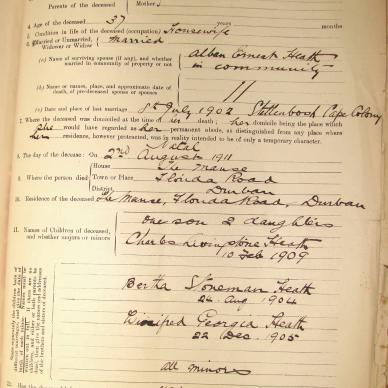 Parents of the deceased
Mother
4. Age of the deceased 37 years months
5. Condition in life of the deceased (occupation) Housewife
6. Married or Unmarried, Married
Widower or Widow
(a) Name of surviving spouse (if any), and whether Alban Ernest Heath
married in community of property or not in community
(b) Name or names, place, and approximate date of
death, of pre-deceased spouse or spouses "
(c) Date and place of last marriage 8th July 1902 Stellenbosch Cape Colony
7. Where the deceased was domiciled at the time of her death; her domicile being the place which
she would have regarded as her permanent abode, as distinguished from any place where
her residence, however protracted, was in reality intended to be of only a temporary character.
Natal
8. The day of the decease: On 2nd August 1911
House The Manse
9. Where the person died Town or Place Florida Road
District Durban
10. Residence of the deceased The Manse, Florida Road, Durban
11. Names of Children of deceased, one son 2 daughters
and whether majors or minors Charles Livingstone Heath
10 Feb 1909
Bertha Stoneman Heath
24 Aug 1904
Winifred Georgia Heath
22 Dec. 1905
all minors